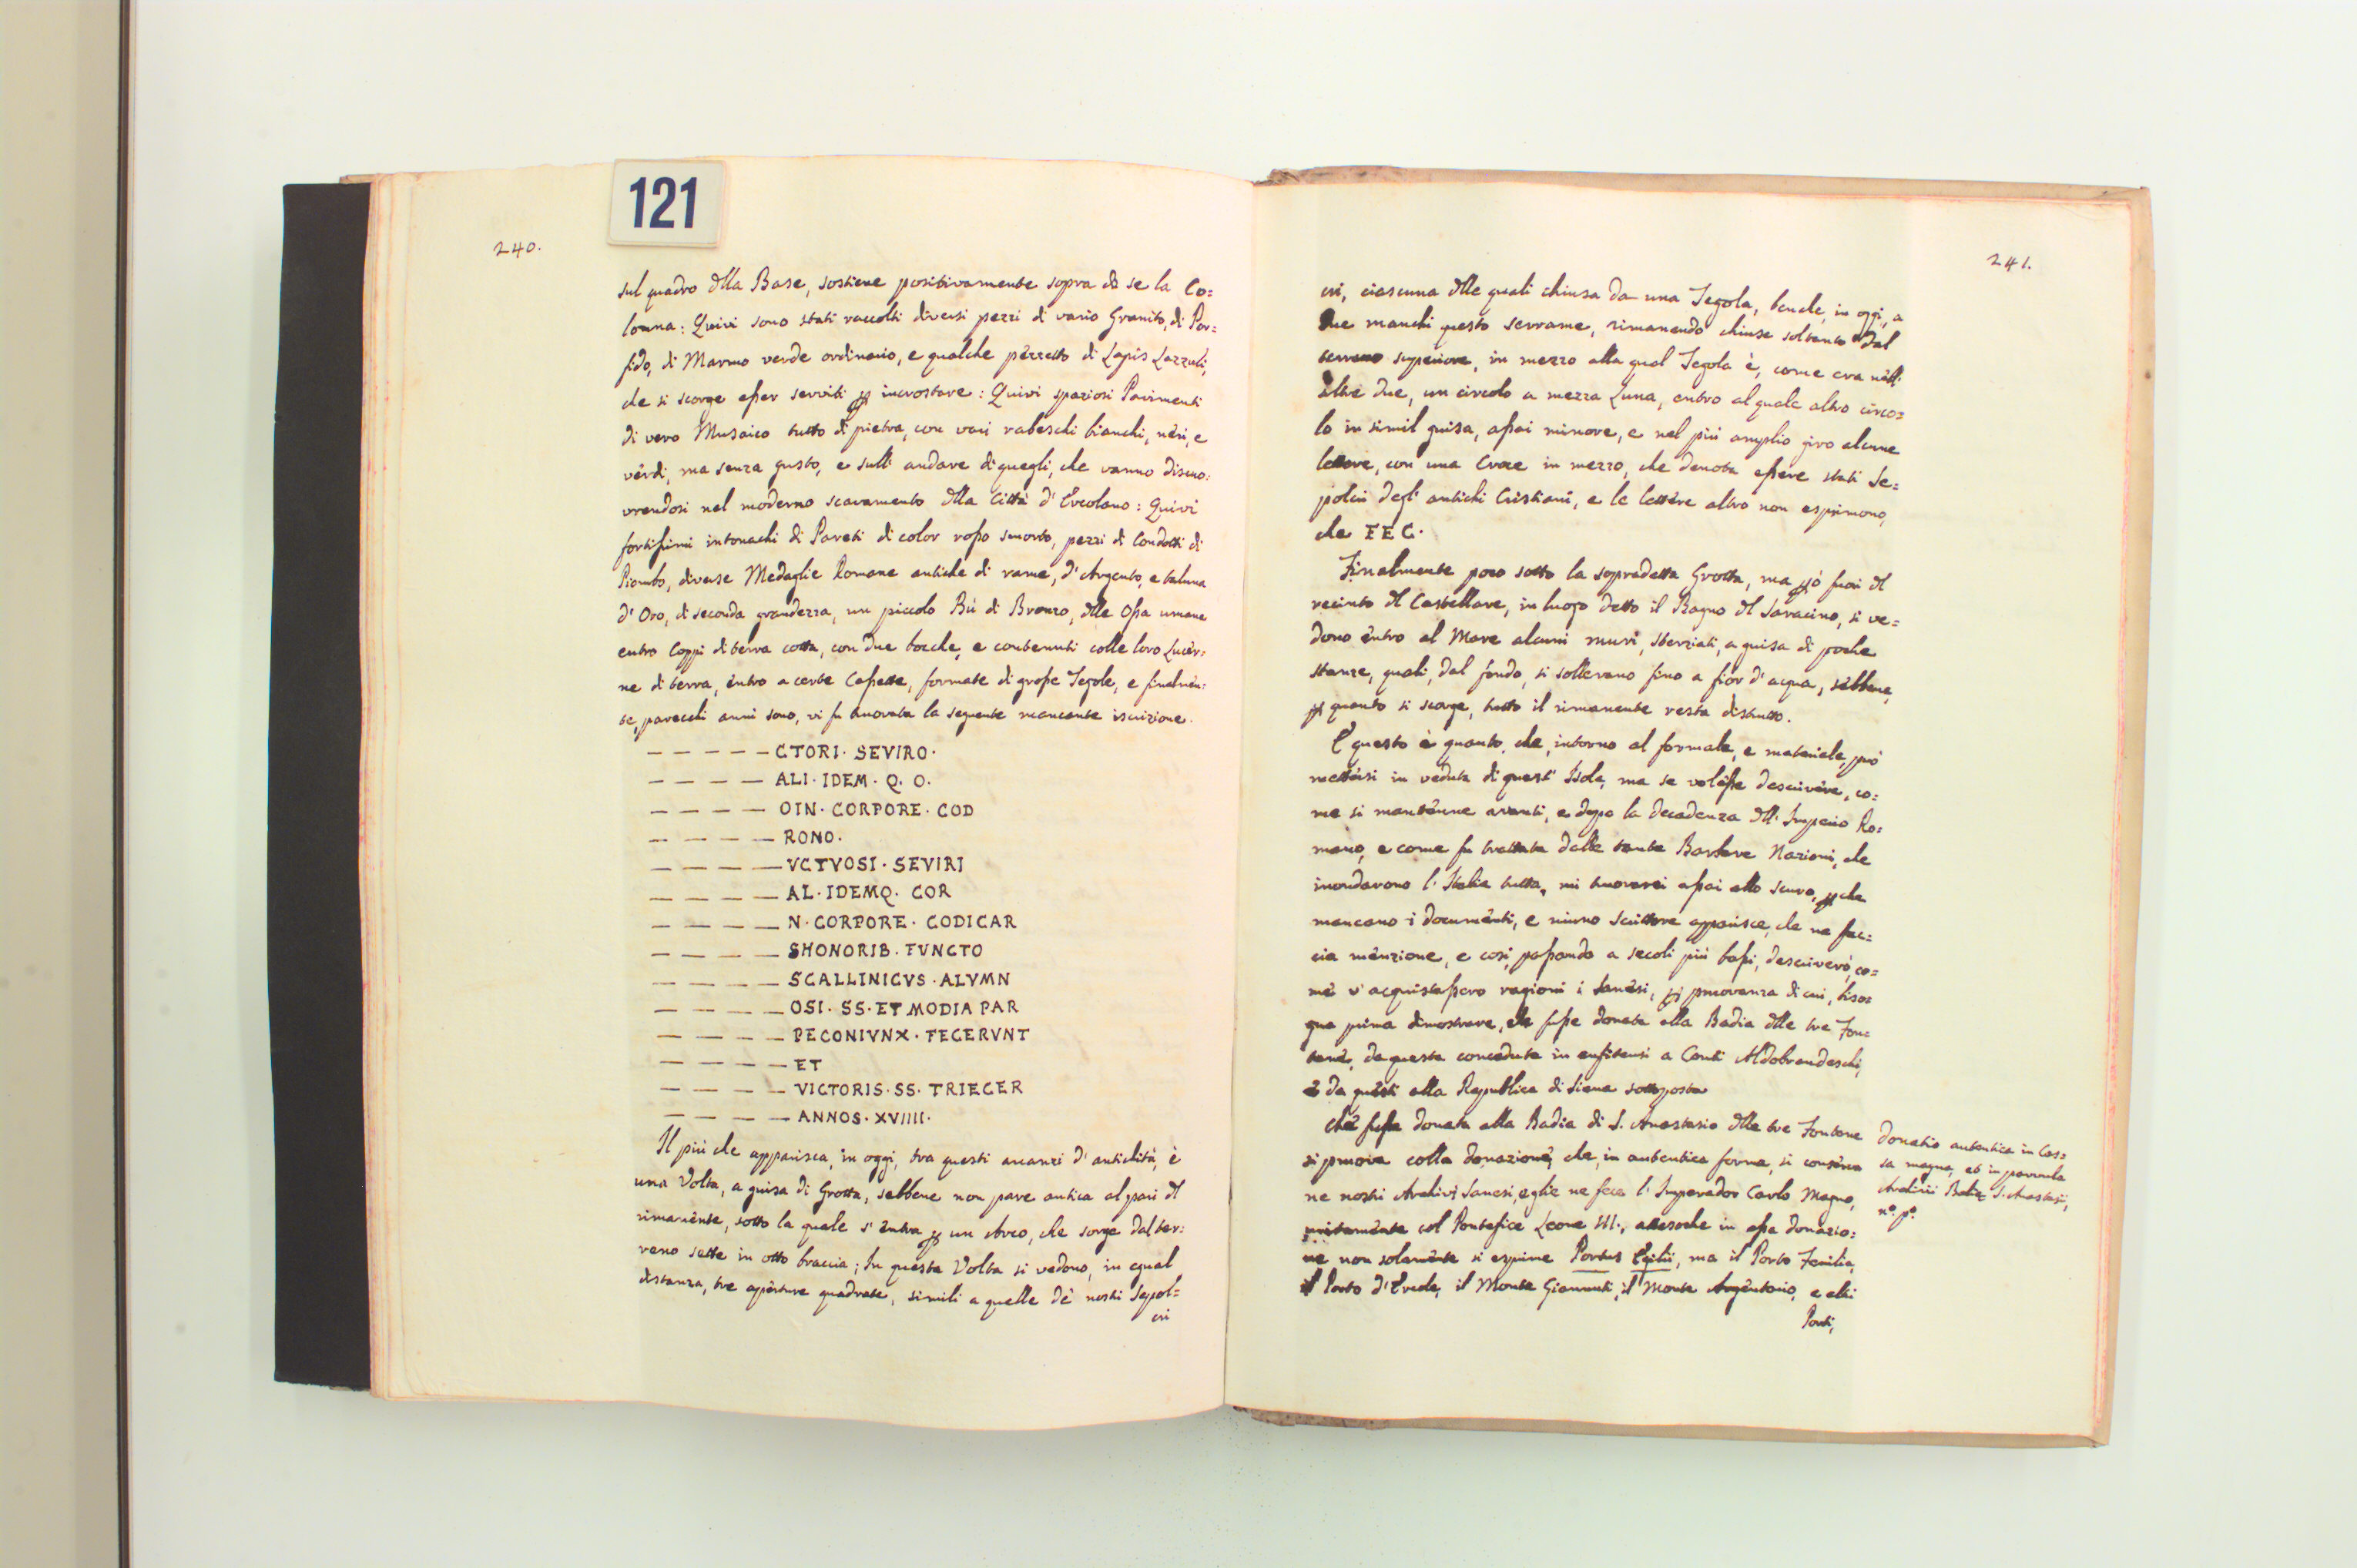 121
240.
sul quadro dlla Base, sostiene positivamente sopra di se la Co=
lonna: Quivi sono stati raccolti diversi pezzi di vario Granito, di Por=
fido, di Marmo verde ordinario, e qualche pezzetto di Lapis Lazzuli,
che si scorge esser serviti p incrostare: Quivi spaziosi Pavimenti
di vero Musaico tutto di pietra, con vari rabeschi bianchi, neri, e
verdi, ma senza gusto, e sull' andare di quegli, che vanno discuo=
vrendosi nel moderno scavamento dlla Città d' Ercolano: Quivi
fortissimi intonachi di Pareti di color rosso smorto, pezzi di Condotti di
Piombo, diverse Medaglie Romane antiche di rame, d' Argento, e taluna
d' Oro, di seconda grandezza, un piccolo Bù di Bronzo, dlle Ossa umane
entro Coppi di terra cotta, con due bocche, e contenuti colle loro Lucer=
ne di terra, entro a certe Cassette, formate di grosse Tegole, e finalmen=
te, parecchi anni sono, vi fu truovata la seguente mancante iscrizione.
— — — — — CTORI · SEVIRO ·
— — — — ALI · IDEM · Q. O.
— — — — OIN · CORPORE · COD
— — — — RONO.
— — — — VCTVOSI · SEVIRI
— — — — AL · IDEMQ · COR
— — — — N · CORPORE · CODICAR
— — — — SHONORIB · FVNCTO
— — — — SCALLINICVS · ALVMN
— — — — OSI · SS · ET MODIA PAR
— — — — PECONIVNX · FECERVNT
— — — — ET
— — — — VICTORIS · SS · TRIECER
— — — — ANNOS · XVIIII.
Il più che apparisca, in oggi, tra questi avanzi d' antichità, è
una Volta, a guisa di Grotta, sebbene non pare antica al pari dl
rimanente, sotto la quale s' entra p un Arco, che sorge dal ter=
reno sette in otto braccia; In questa Volta si vedono, in egual
distanza, tre aperture quadrate, simili a quelle de' nostri Sepol=
cri
241.
cri, ciascuna dlle quali chiusa da una Tegola, benche, in oggi, a
due manchi questo serrame, rimanendo chiuse soltanto dal
terreno superiore, in mezzo alla qual Tegola è, come era nell'
altre due, un circolo a mezza Luna, entro al quale altro circo=
lo in simil guisa, assai minore, e nel più amplio giro alcune
lettere, con una Croce in mezzo, che denota essere stati Se=
polcri degl' antichi Cristiani, e le lettere altro non esprimono,
che FEC.
Finalmente poco sotto la sopradetta Grotta, ma pò fuori dl
recinto dl Castellare, in luogo detto il Bagno dl Saracino, si ve=
dono entro al Mare alcuni muri, sterziati, a guisa di poche
stanze, quali, dal fondo, si sollevano fino a fior d' acqua, sebbene,
p quanto si scorge, tutto il rimanente resta distrutto.
E questo è quanto, che, intorno al formale, e materiale, può
mettersi in veduta di quest' Isola, ma se volesse descrivere, co=
me si mantenne avanti, e dopo la decadenza dll' Imperio Ro=
mano, e come fu trattata dalle tante Barbare Nazioni, che
inondarono l' Italia tutta, mi truoverei assai allo scuro, pche
mancano i documenti, e niuno Scrittore apparisce, che ne fac=
cia menzione, e così, passando a secoli più bassi, descriverò, co=
me v' acquistassero ragioni i Sanesi, p pruovanza di cui, biso=
gna prima dimostrare, che fusse donata alla Badia dlle tre Fon=
tane, da questa conceduta in enfiteusi a Conti Aldobrandeschi,
e da questi alla Republica di Siena sottoposta
Che fusse donata alla Badia di S. Anastasio dlle tre Fontane
si pruova colla donazione, che, in autentica forma, si conserva
ne nostri Archivj Sanesi, e glie ne fece l' Imperador Carlo Magno,
unitamente col Pontefice Leone III., attesoche in essa donazio=
ne non solamente si esprime Portus Egilii, ma il Porto Fenilia,
il Porto d' Ercole, il Monte Giannuti, il Monte Argentario, e altri
Porti,
Donatio autentica in Cas=
sa magna, et in parvula
Archivii Badiæ S. Anastasii,
nº. pº.